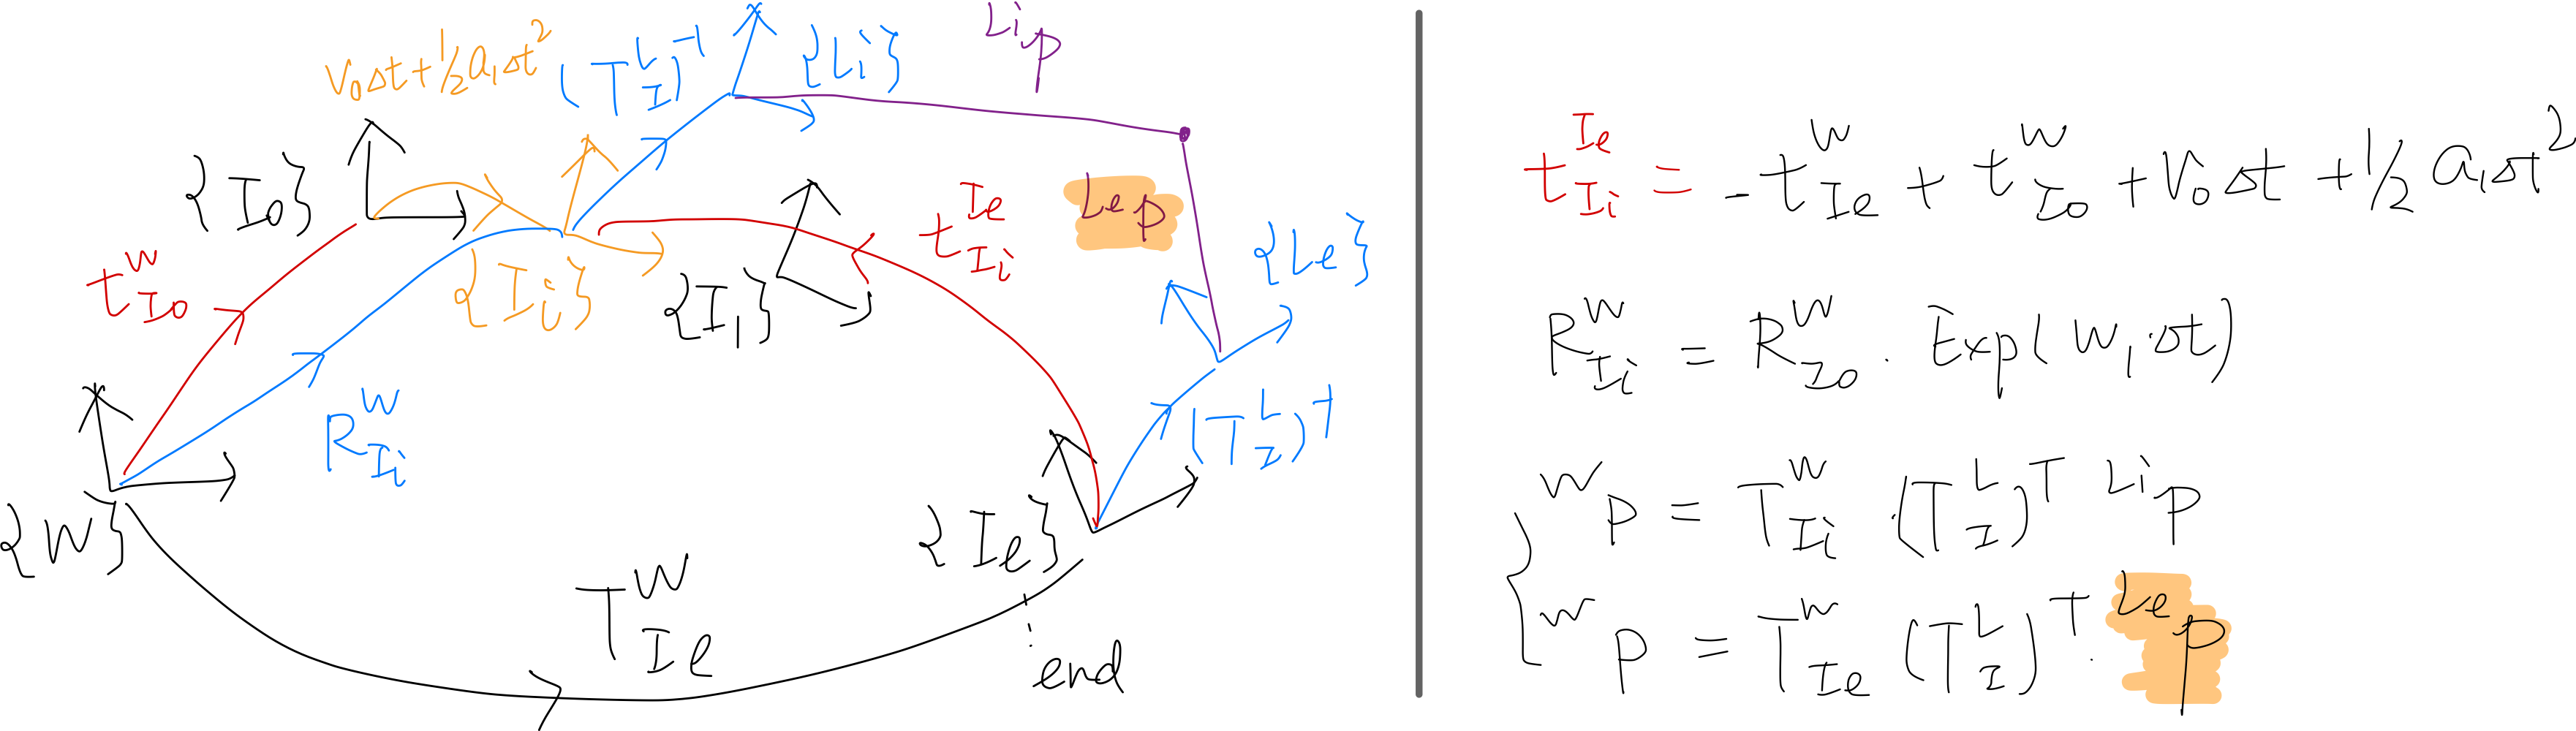 V₀Δt+½a₁Δt²
(T_I^L)⁻¹
{Li}
^{Li}p
{I₀}
t_{I₀}^W
{Ii}
{I₁}
t_{Ii}^{Ie}
^{Le}p
{Le}
R_{Ii}^W
(T_I^L)^T
{W}
{Ie}
T_{Ie}^W
end
t_{Ii}^{Ie} = -t_{Ie}^W + t_{I₀}^W + V₀Δt + ½a₁Δt²
R_{Ii}^W = R_{I₀}^W · Exp(W₁·Δt)
^Wp = T_{Ii}^W · (T_I^L)^T ^{Li}p
^Wp = T_{Ie}^W (T_I^L)^T · ^{Le}p